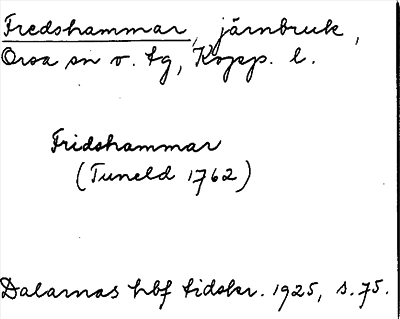 Fredshammar, järnbruk,
Orsa sn o. tg, Kopp. l.
Fridshammar
(Tuneld 1762)
Dalarnas hbf tidskr. 1925, s. 75.